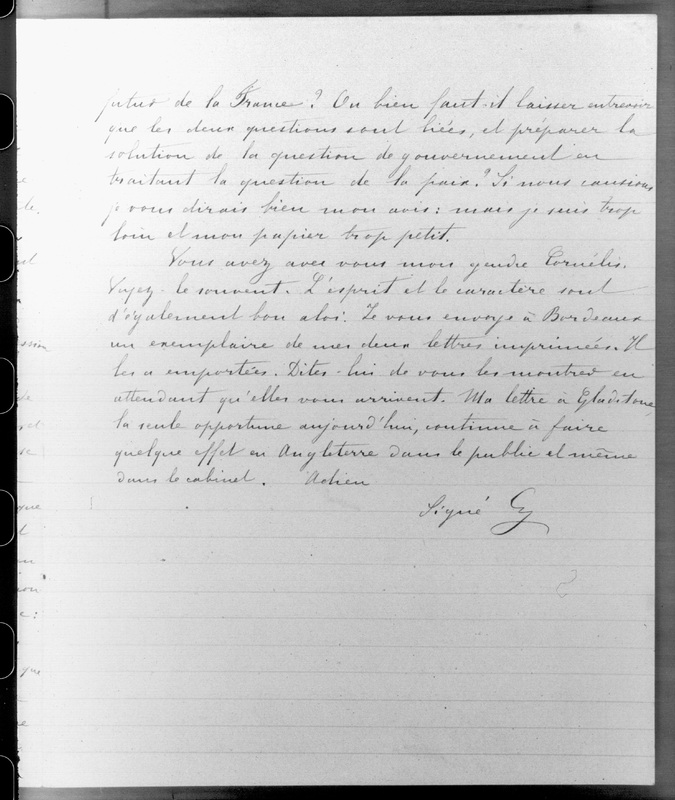 futur de la France? Ou bien faut-il laisser entrevoir
que les deux questions sont liées, et préparer la
solution de la question de gouvernement en
traitant la question de la paix? Si nous causions
je vous dirais bien mon avis: mais je suis trop
loin et mon papier trop petit.
Vous avez avec vous mon gendre Cornélis.
Voyez-le souvent. L'esprit et le caractère sont
d'également bon aloi. Je vous envoye à Bordeaux
un exemplaire de mes deux lettres imprimées. Il
les a emportées. Dites-lui de vous les montrer en
attendant qu'elles vous arrivent. Ma lettre à Gladstone,
la seule opportune aujourd'hui, continue à faire
quelque effet en Angleterre dans le public et même
dans le cabinet. Adieu
Signé Gy